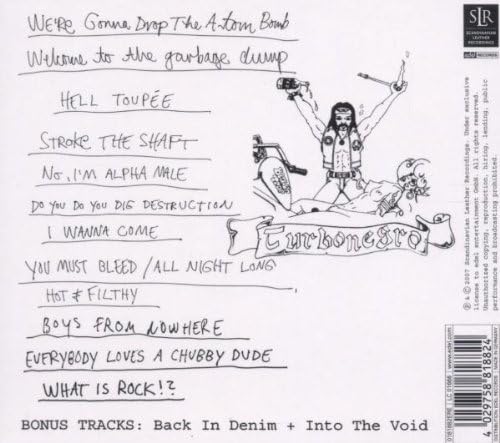 We're Gonna Drop The A-tom Bomb
Welcome to the garbage dump
HELL TOUPÉE
STROKE THE SHAFT
No, I'M ALPHA MALE
DO YOU DO YOU DIG DESTRUCTION
I WANNA COME
YOU MUST BLEED / ALL NIGHT LONG
HOT & FILTHY
BOYS FROM NOWHERE
EVERYBODY LOVES A CHUBBY DUDE
WHAT IS ROCK!?
BONUS TRACKS: Back In Denim + Into The Void
Turbonegro
SLR
SCANDINAVIAN
LEATHER
RECORDINGS
edel RECORDS
℗ & © 2007 Scandinavian Leather Recordings. Under exclusive
license to edel entertainment GmbH. All rights reserved.
Unauthorised copying, reproduction, hiring, lending, public
performance and broadcasting prohibited.
4 029758 818824